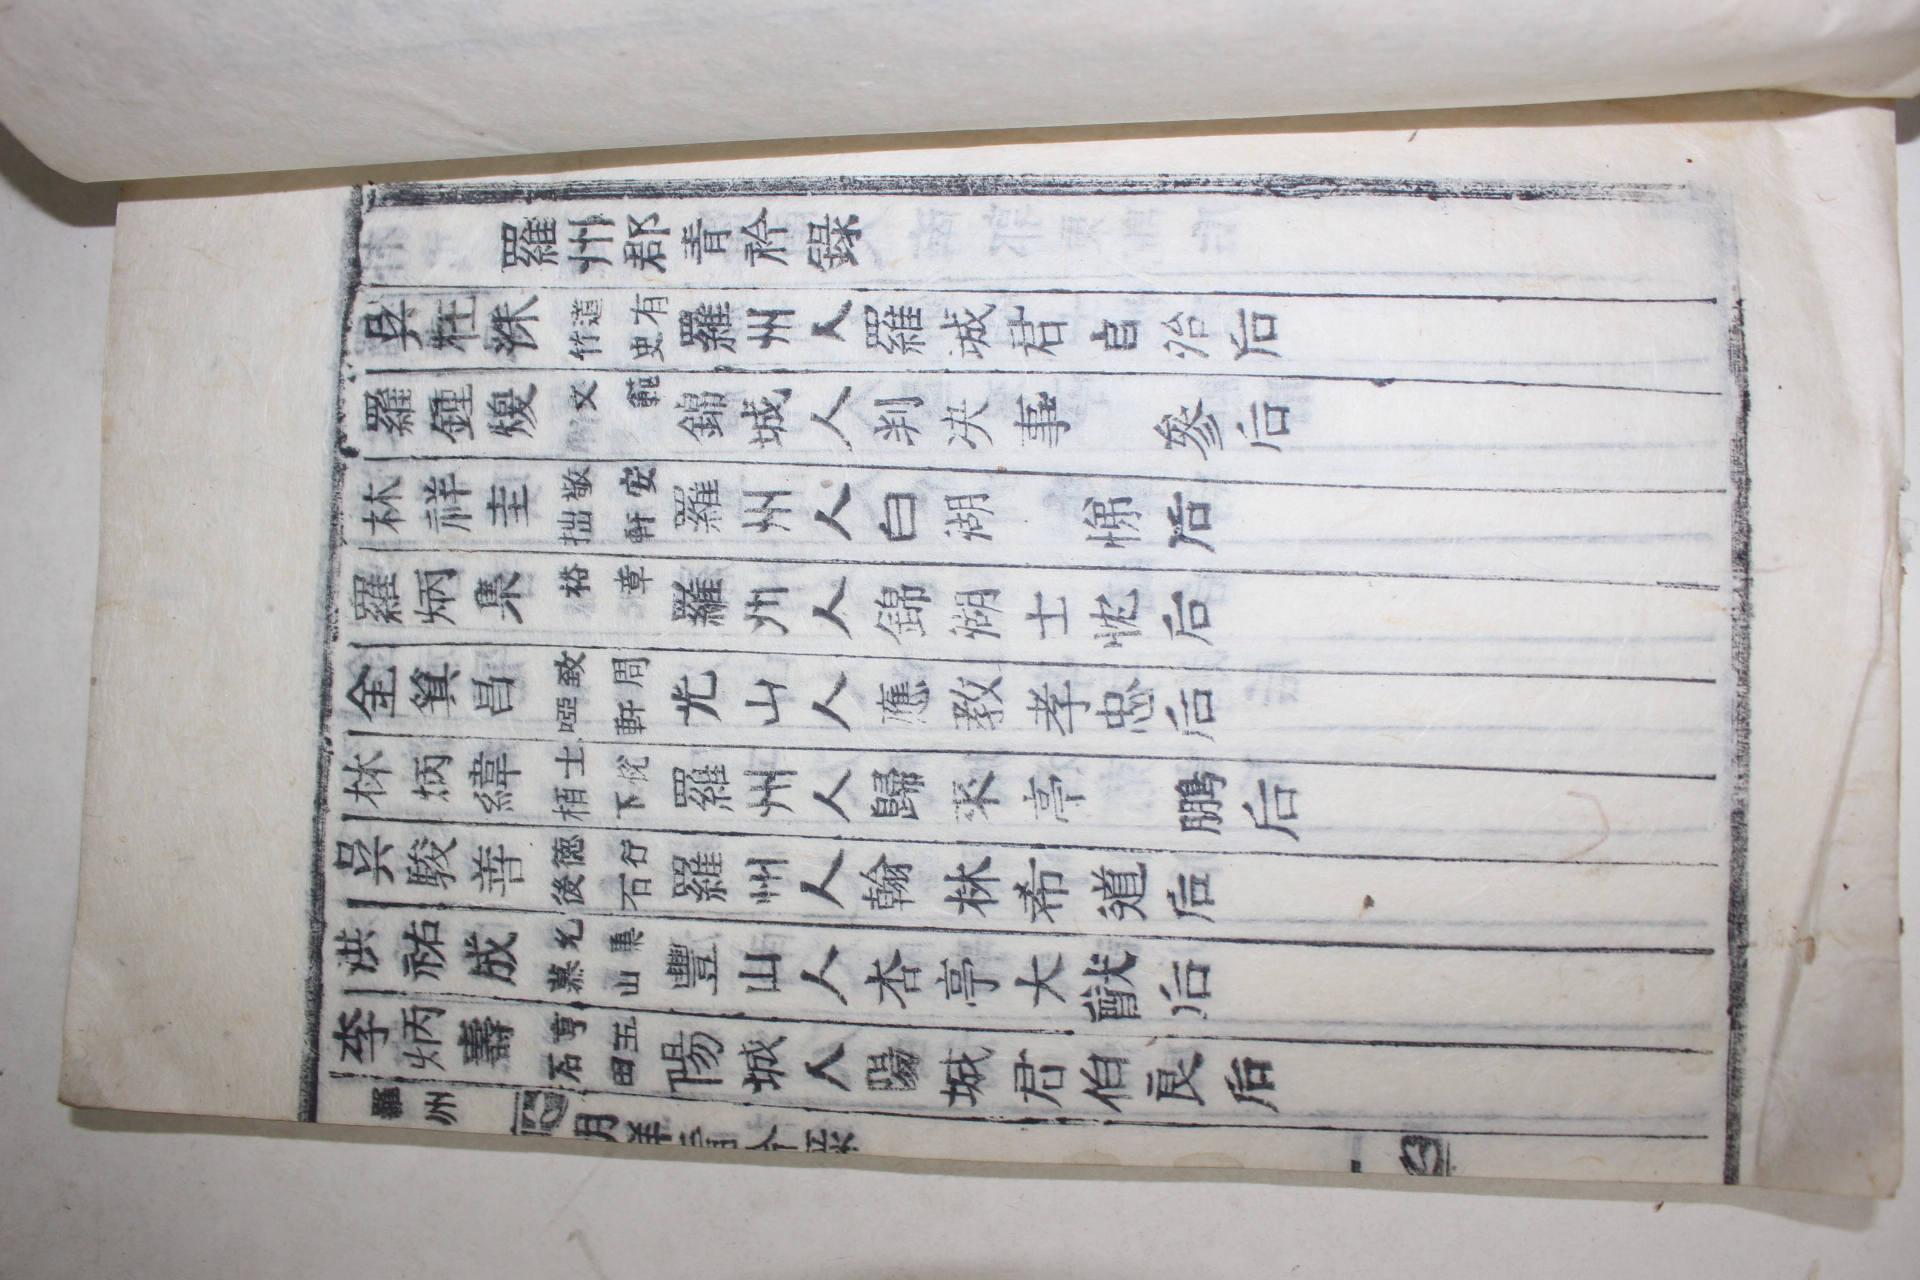 羅州郡青衿錄
吳在洙 道有 竹史 羅州人羅城君自治后
羅鍾煖 文範 錦城人判决事 參后
林祥圭 敬安 拙軒 羅州人白湖 悌后
羅炳集 裕章 羅州人錦湖士忱后
金箕昌 致周 啞軒 光山人應敎孝忠后
林炳緯 士悅 栢下 羅州人歸來亭 鵬后
吳駿善 德行 後石 羅州人翰林希道后
洪祐成 允集 慕山 豐山人杏亭大猷后
李炳壽 亨五 石田 陽城人陽城君伯良后
羅州
青衿錄